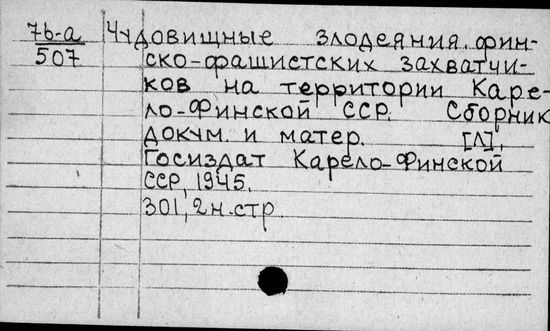 7б-а Чудовищные злодеяния фин-
507 ско-фашистских захватчи-
ков на территории Каре-
ло-Финской ССР. Сборник
докум. и матер. [Л],
Госиздат Карело-Финской
ССР, 1945.
301, 2 н. стр.